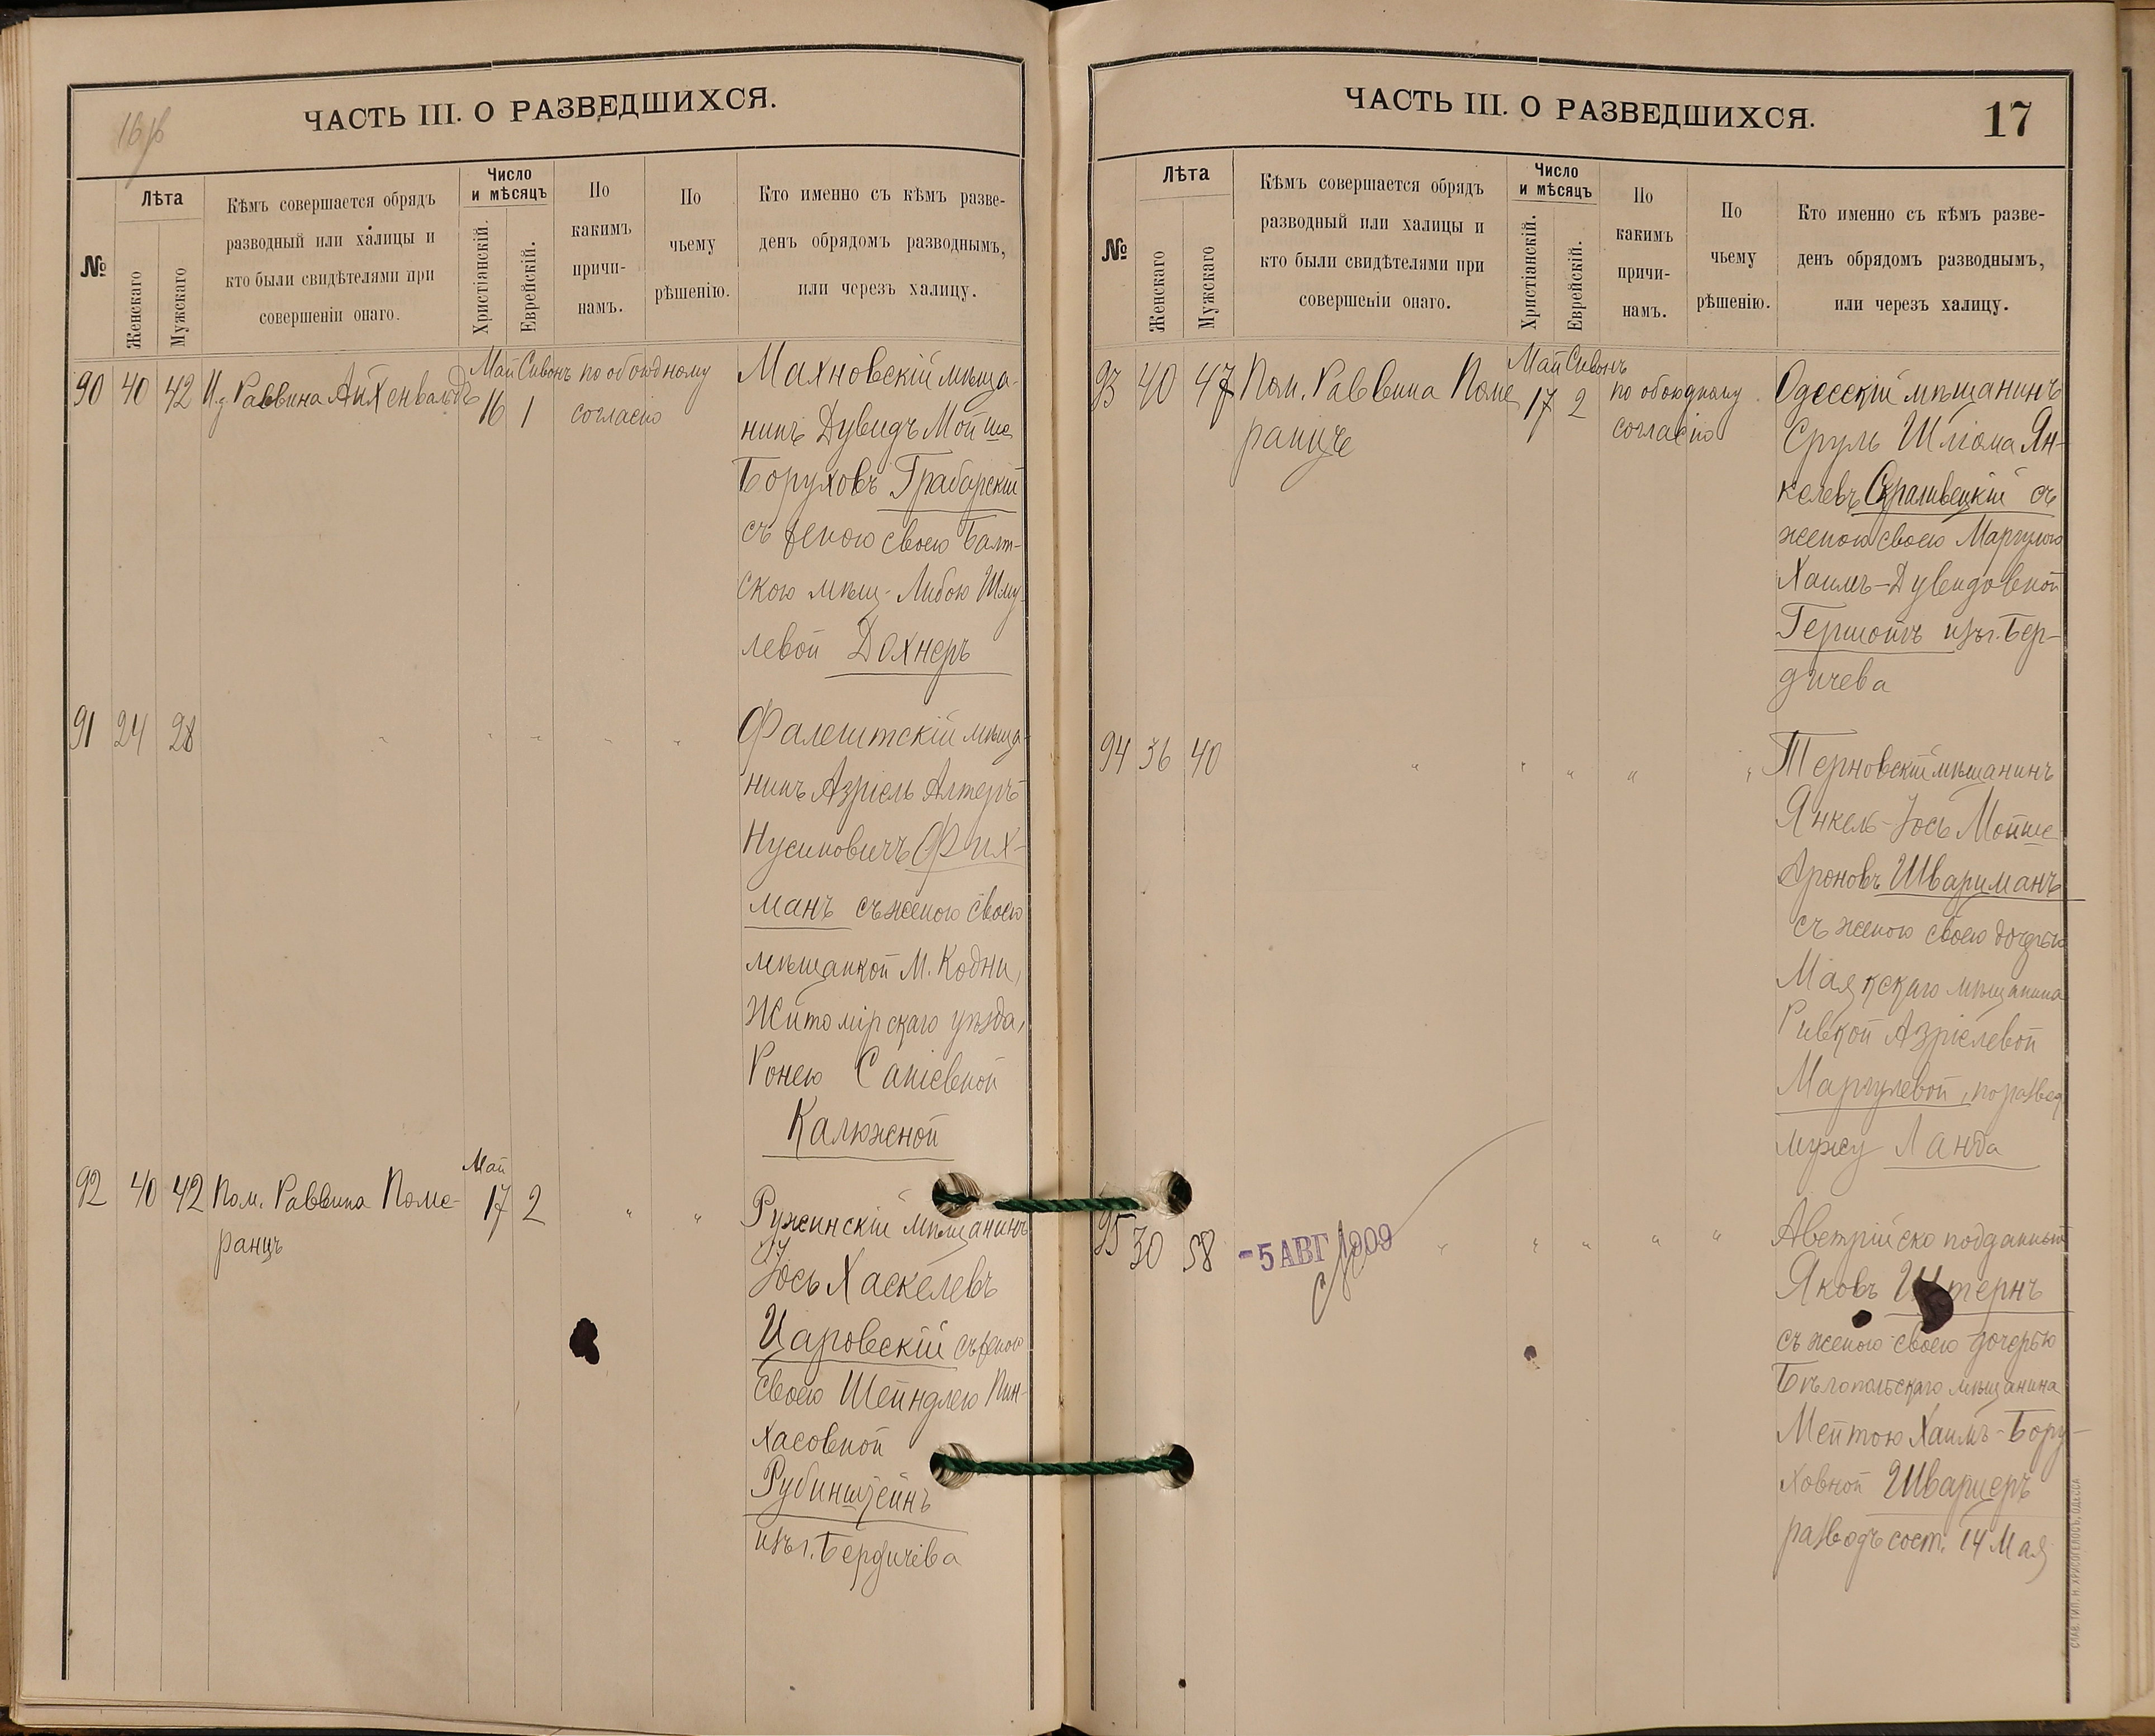 16об
ЧАСТЬ III. О РАЗВЕДШИХСЯ.
№
Лѣта
Женскаго
Мужскаго
Кѣмъ совершается обрядъ
разводный или халицы и
кто были свидѣтелями при
совершеніи онаго.
Число
и мѣсяцъ
Христіанскій.
Еврейскій.
По
какимъ
причи-
намъ.
По
чьему
рѣшенію.
Кто именно съ кѣмъ разве-
денъ обрядомъ разводнымъ,
или черезъ халицу.
90 40 42 И.д. Раввина Айхенвальдъ
Май Сивонъ
16 1
по обоюдному
согласію
Махновскій мѣща-
нинъ Дувидъ Мойше
Боруховъ Грабарскій
съ женою своею Балт-
скою мѣщ. Либою Шму-
левой Дохнеръ
91 24 28 " " " " "
Фалештскій мѣща-
нинъ Азріель Алтеръ
Нусиновичъ Фих-
манъ съ женою своею
мѣщанкой М. Кодни,
Житомірскаго уѣзда,
Ронею Саніевной
Калюжной
92 40 42 Пом. Раввина Поме-
ранцъ
Май
17 2 " "
Ружинскій мѣщанинъ
Іось Хаскелевъ
Царовскій съ женою
своею Шейндлею Пин-
хасовной
Рубинштейнъ
изъ г. Бердичева
ЧАСТЬ III. О РАЗВЕДШИХСЯ.
17
№
Лѣта
Женскаго
Мужскаго
Кѣмъ совершается обрядъ
разводный или халицы и
кто были свидѣтелями при
совершеніи онаго.
Число
и мѣсяцъ
Христіанскій.
Еврейскій.
По
какимъ
причи-
намъ.
По
чьему
рѣшенію.
Кто именно съ кѣмъ разве-
денъ обрядомъ разводнымъ,
или черезъ халицу.
93 40 47 Пом. Раввина Поме
ранцъ
Май Сивонъ
17 2
по обоюдному
согласію
Одесскій мѣщанинъ
Сруль Шліома Ян-
келевъ съ
женою своею Маргулею
Хаимъ-Дувидовной
Гершойгъ изъ г. Бер-
дичева
94 36 40 " " " " "
Терновскій мѣщанинъ
Янкель-Іось Мойше
Ароновъ Шварцманъ
съ женою своею дочерью
Маякскаго мѣщанина
Ривкой Азріелевой
Маргулевой, по развед.
мужу Ланда
95 30 58 -5 АВГ 1909 " " " " "
Австрійско подданный
Яковъ Штернъ
съ женою своею дочерью
Бѣлопольскаго мѣщанина
Мейтою Хаимъ-Бору-
ховной Шварцеръ
разводъ сост. 14 Мая
СЛАВ. ТИП. Н. ХРИСОГЕЛОСЪ, ОДЕССА